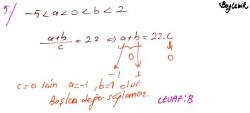 5/ -5<a<0<b<2
a+b/c = 22 ⇒ a+b = 22.c
0 0
-1 1
c=0 için a=-1, b=1 olur.
Başka değer sağlamaz.
CEVAP: B